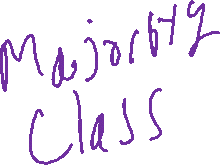 Majority
Class